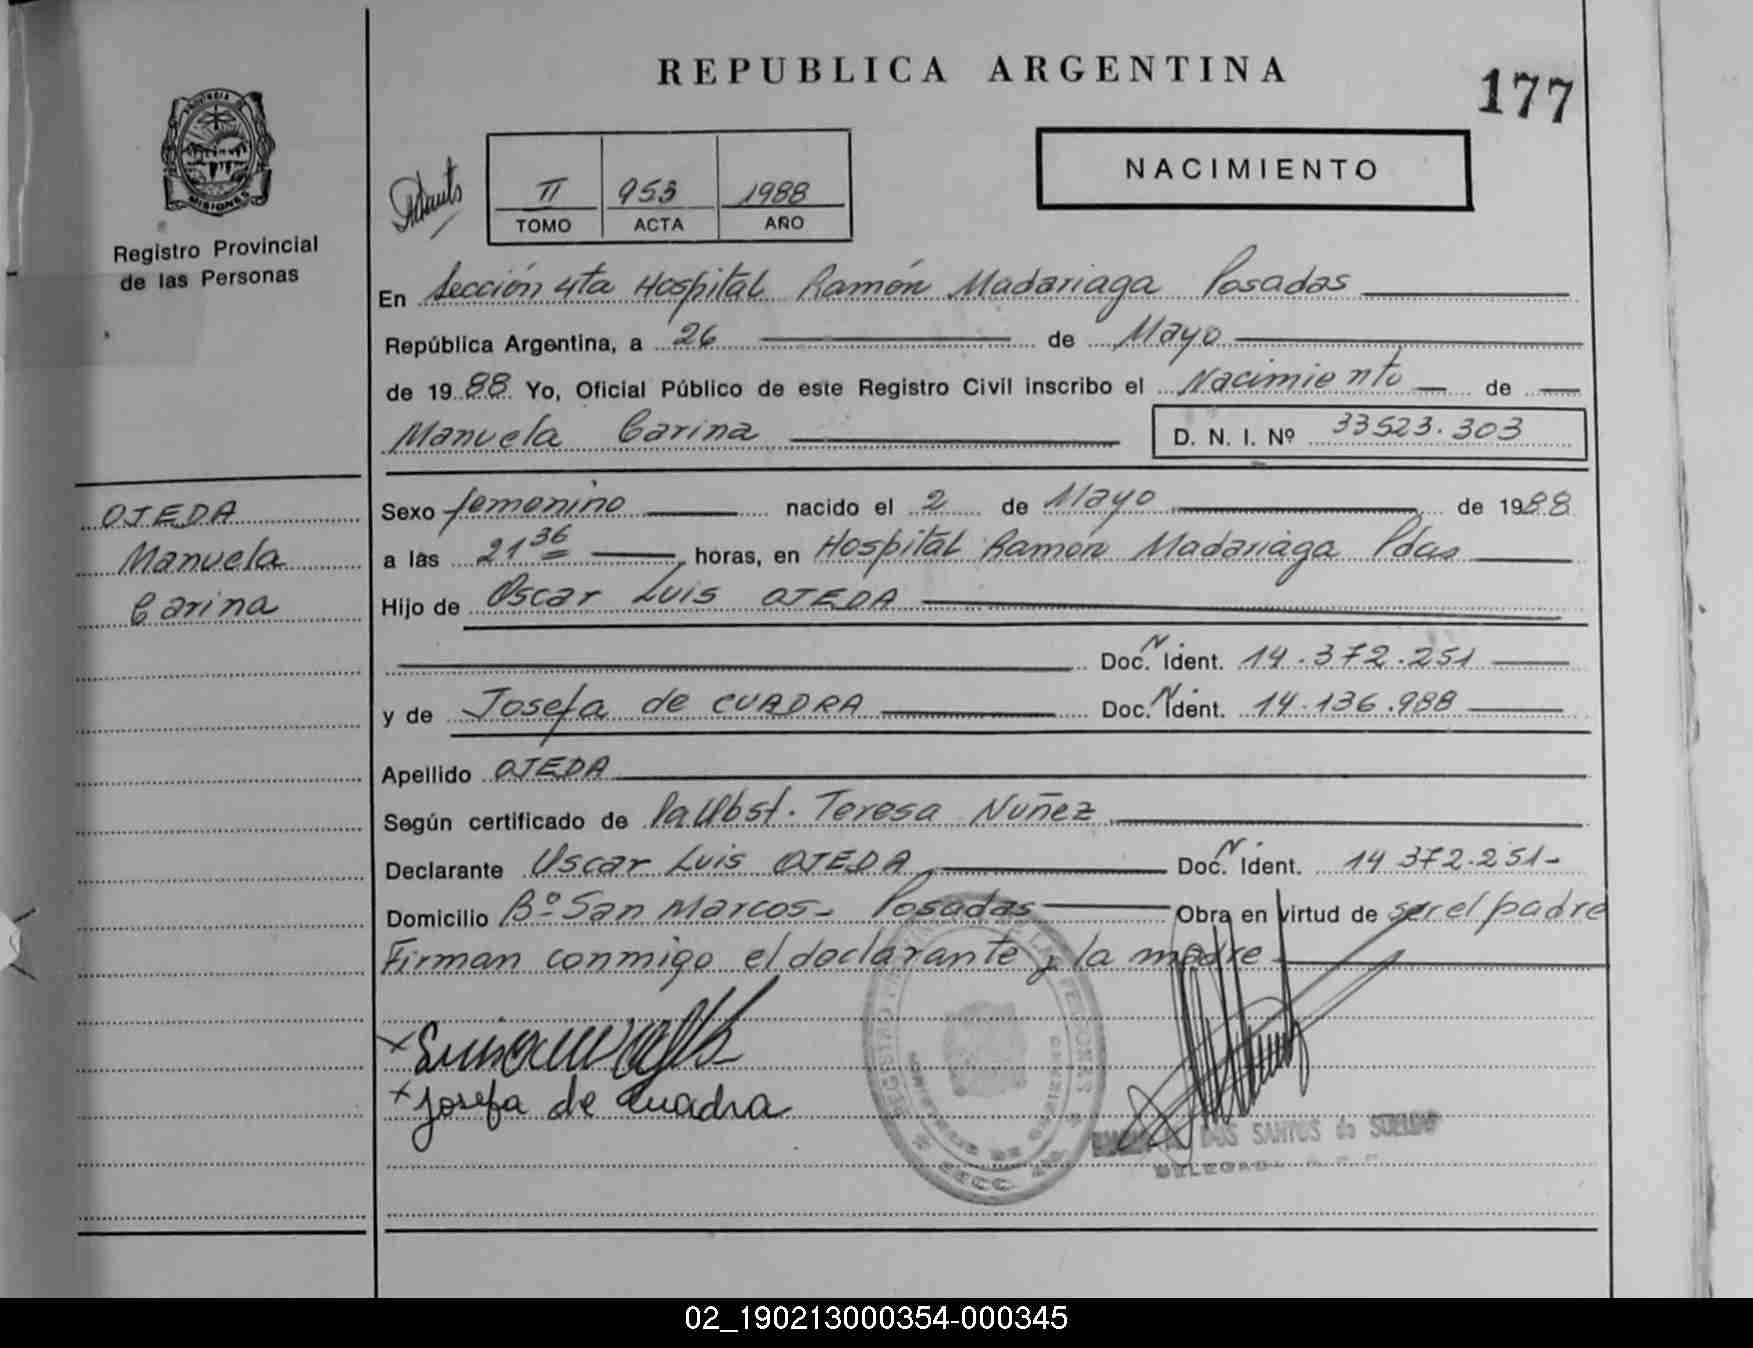 REPUBLICA ARGENTINA
177
PROVINCIA DE
MISIONES
Registro Provincial
de las Personas
II 953 1988
TOMO ACTA AÑO
NACIMIENTO
En Sección 4ta Hospital Ramón Madariaga Posadas
República Argentina, a 26 de Mayo
de 1988 Yo, Oficial Público de este Registro Civil inscribo el Nacimiento de
Manuela Carina D. N. I. Nº 33523.303
OJEDA
Manuela
Carina
Sexo femenino nacido el 2 de Mayo de 1988
a las 21 36 horas, en Hospital Ramón Madariaga Pdas
Hijo de Oscar Luis OJEDA
Doc. N. Ident. 14.372.251
y de Josefa de CUADRA Doc. N. Ident. 14.136.988
Apellido OJEDA
Según certificado de Obst. Teresa Nuñez
Declarante Oscar Luis OJEDA Doc. N. Ident. 14 372.251-
Domicilio Bº San Marcos- Posadas Obra en virtud de ser el padre
Firman conmigo el declarante y la madre
x
x Josefa de Cuadra
DOS SANTOS de SUELDO
02_190213000354-000345